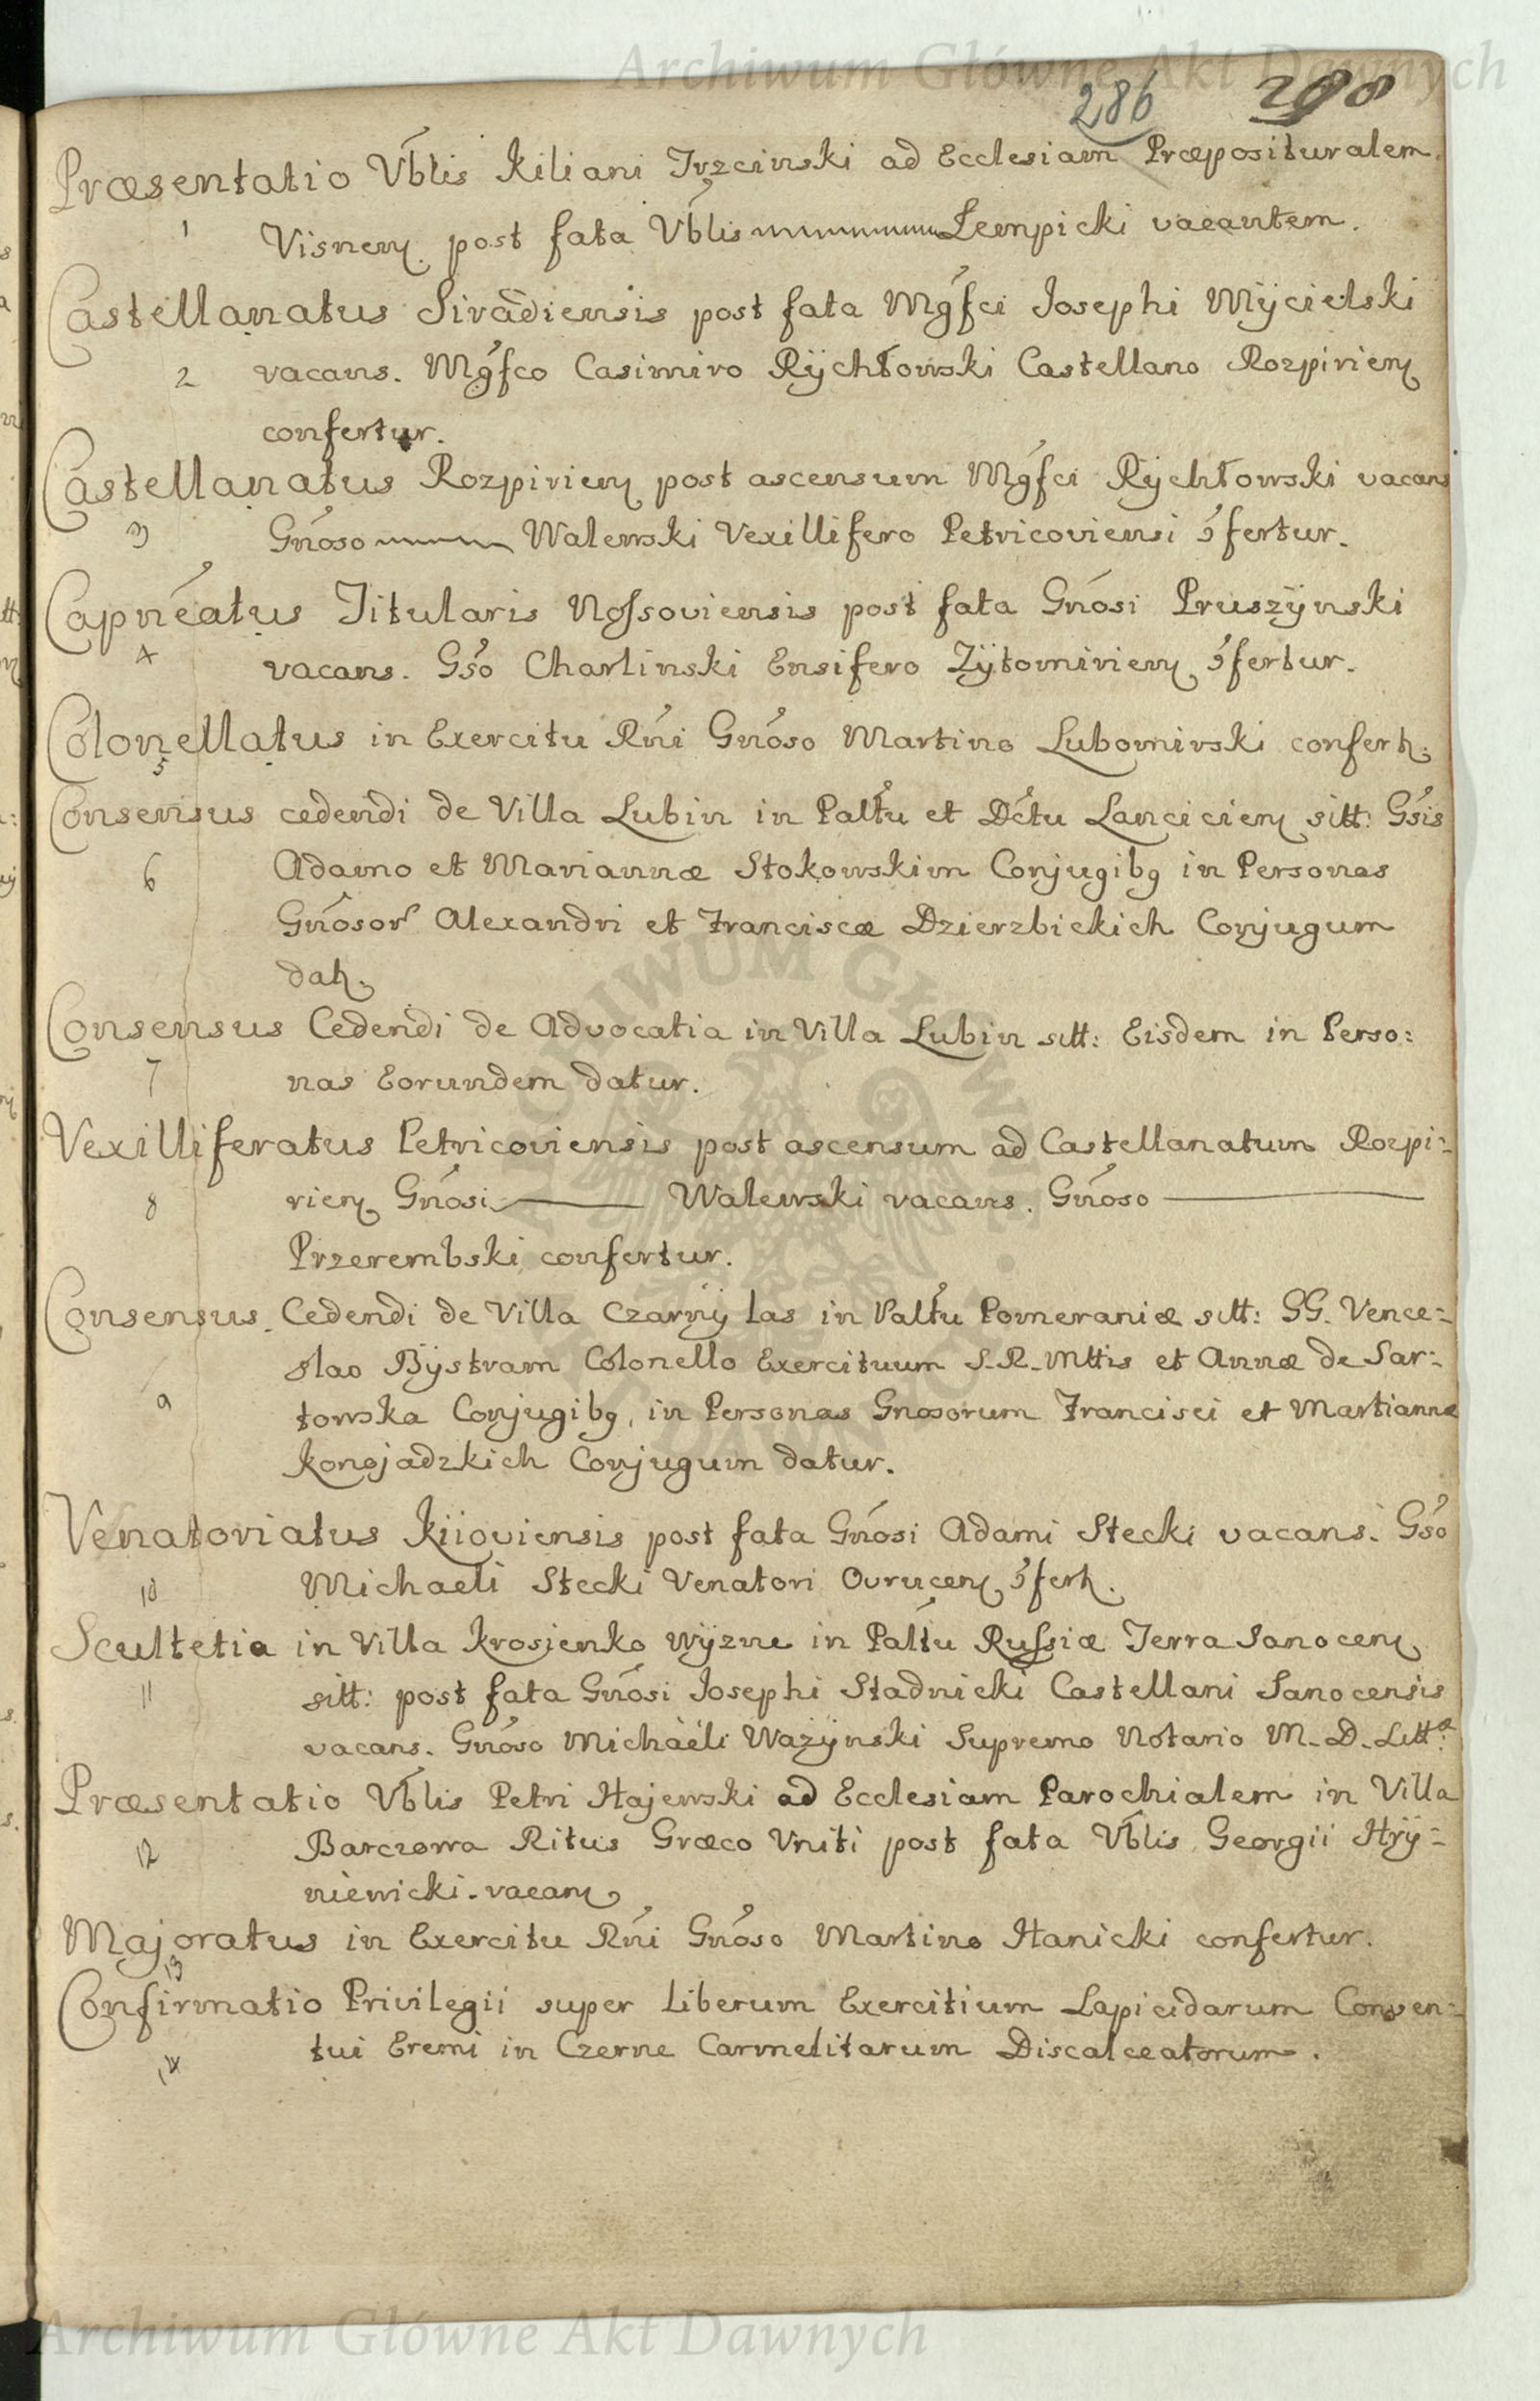 Archiwum Główne Akt Dawnych
286 288
Præsentatio Vblis Kiliani Trzcinski ad Ecclesiam Præposituralem
1 Visnen. post fata Vblis Lempicki vacantem.
Castellanatus Siradiensis post fata Mgfci Josephi Mÿcielski
2 vacans. Mgfco Casimiro Rÿchłowski Castellano Rozpirien
confertur.
Castellanatus Rozpirien post ascensum Mgfci Rÿchłowski vacans
3 Gnoso Walewski Vexillifero Petricoviensi ɔfertur.
Capneatus Titularis Nossoviensis post fata Gnosi Pruszÿnski
4 vacans. Gso Charlinski Ensifero Zÿtomirien ɔfertur.
Colonellatus in Exercitu Rni Gnoso Martino Lubomirski confertr.
5
Consensus cedendi de Villa Lubin in Paltu et Dctu Lancicien sitt: Gsis
6 Adamo et Mariannæ Stokowskim Conjugibg in Personas
Gnosor Alexandri et Franciscæ Dzierzbickich Conjugum
datr.
Consensus Cedendi de Advocatia in Villa Lubin sitt: Eisdem in Perso:
7 nas Eorundem datur.
Vexilliferatus Petricoviensis post ascensum ad Castellanatum Rozpi:
8 rien Gnosi Walewski vacans. Gnoso
Przerembski confertur.
Consensus Cedendi de Villa Czarnÿ Las in Paltu Pomeraniæ sitt: GG. Vence:
slao Bÿstram Colonello Exercituum S.R.Mttis et Annæ de Sar:
9 towska Conjugibg, in Personas Gnosorum Francisci et Martiannæ
Konojadzkich Conjugum datur.
Venatoriatus Kiioviensis post fata Gnosi Adami Stecki vacans. Gso
10 Michaeli Stecki Venatori Ovrucen ɔfertr.
Scultetia in Villa Krosienko wÿzne in Paltu Russiæ Terra Sanocen
11 sitt: post fata Gnosi Josephi Stadnicki Castellani Sanocensis
vacans. Gnoso Michaëli Wazÿnski Supremo Notario M.D.Litt:æ
Præsentatio Vblis Petri Hajewski ad Ecclesiam Parochialem in Villa
12 Barczowa Ritus Græco Uniti post fata Vblis Georgii Hrÿ:
niewicki vacan
Majoratus in Exercitu Rni Gnoso Martino Hanicki confertur.
13
Confirmatio Privilegii super Liberum Exercitium Lapicidarum Conven:
14 tui Eremi in Czerne Carmelitarum Discalceatorum.
Archiwum Główne Akt Dawnych